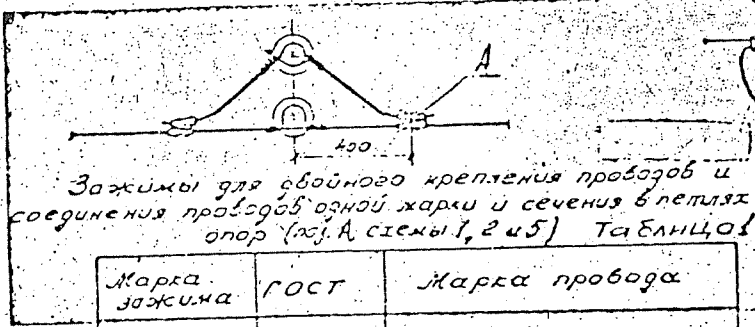 А
400
Зажимы для двойного крепления проводов и
соединения проводов одной марки и сечения в петлях
опор (А схемы 1, 2 и 5) Таблица 1
Марка зажима
ГОСТ
Марка провода